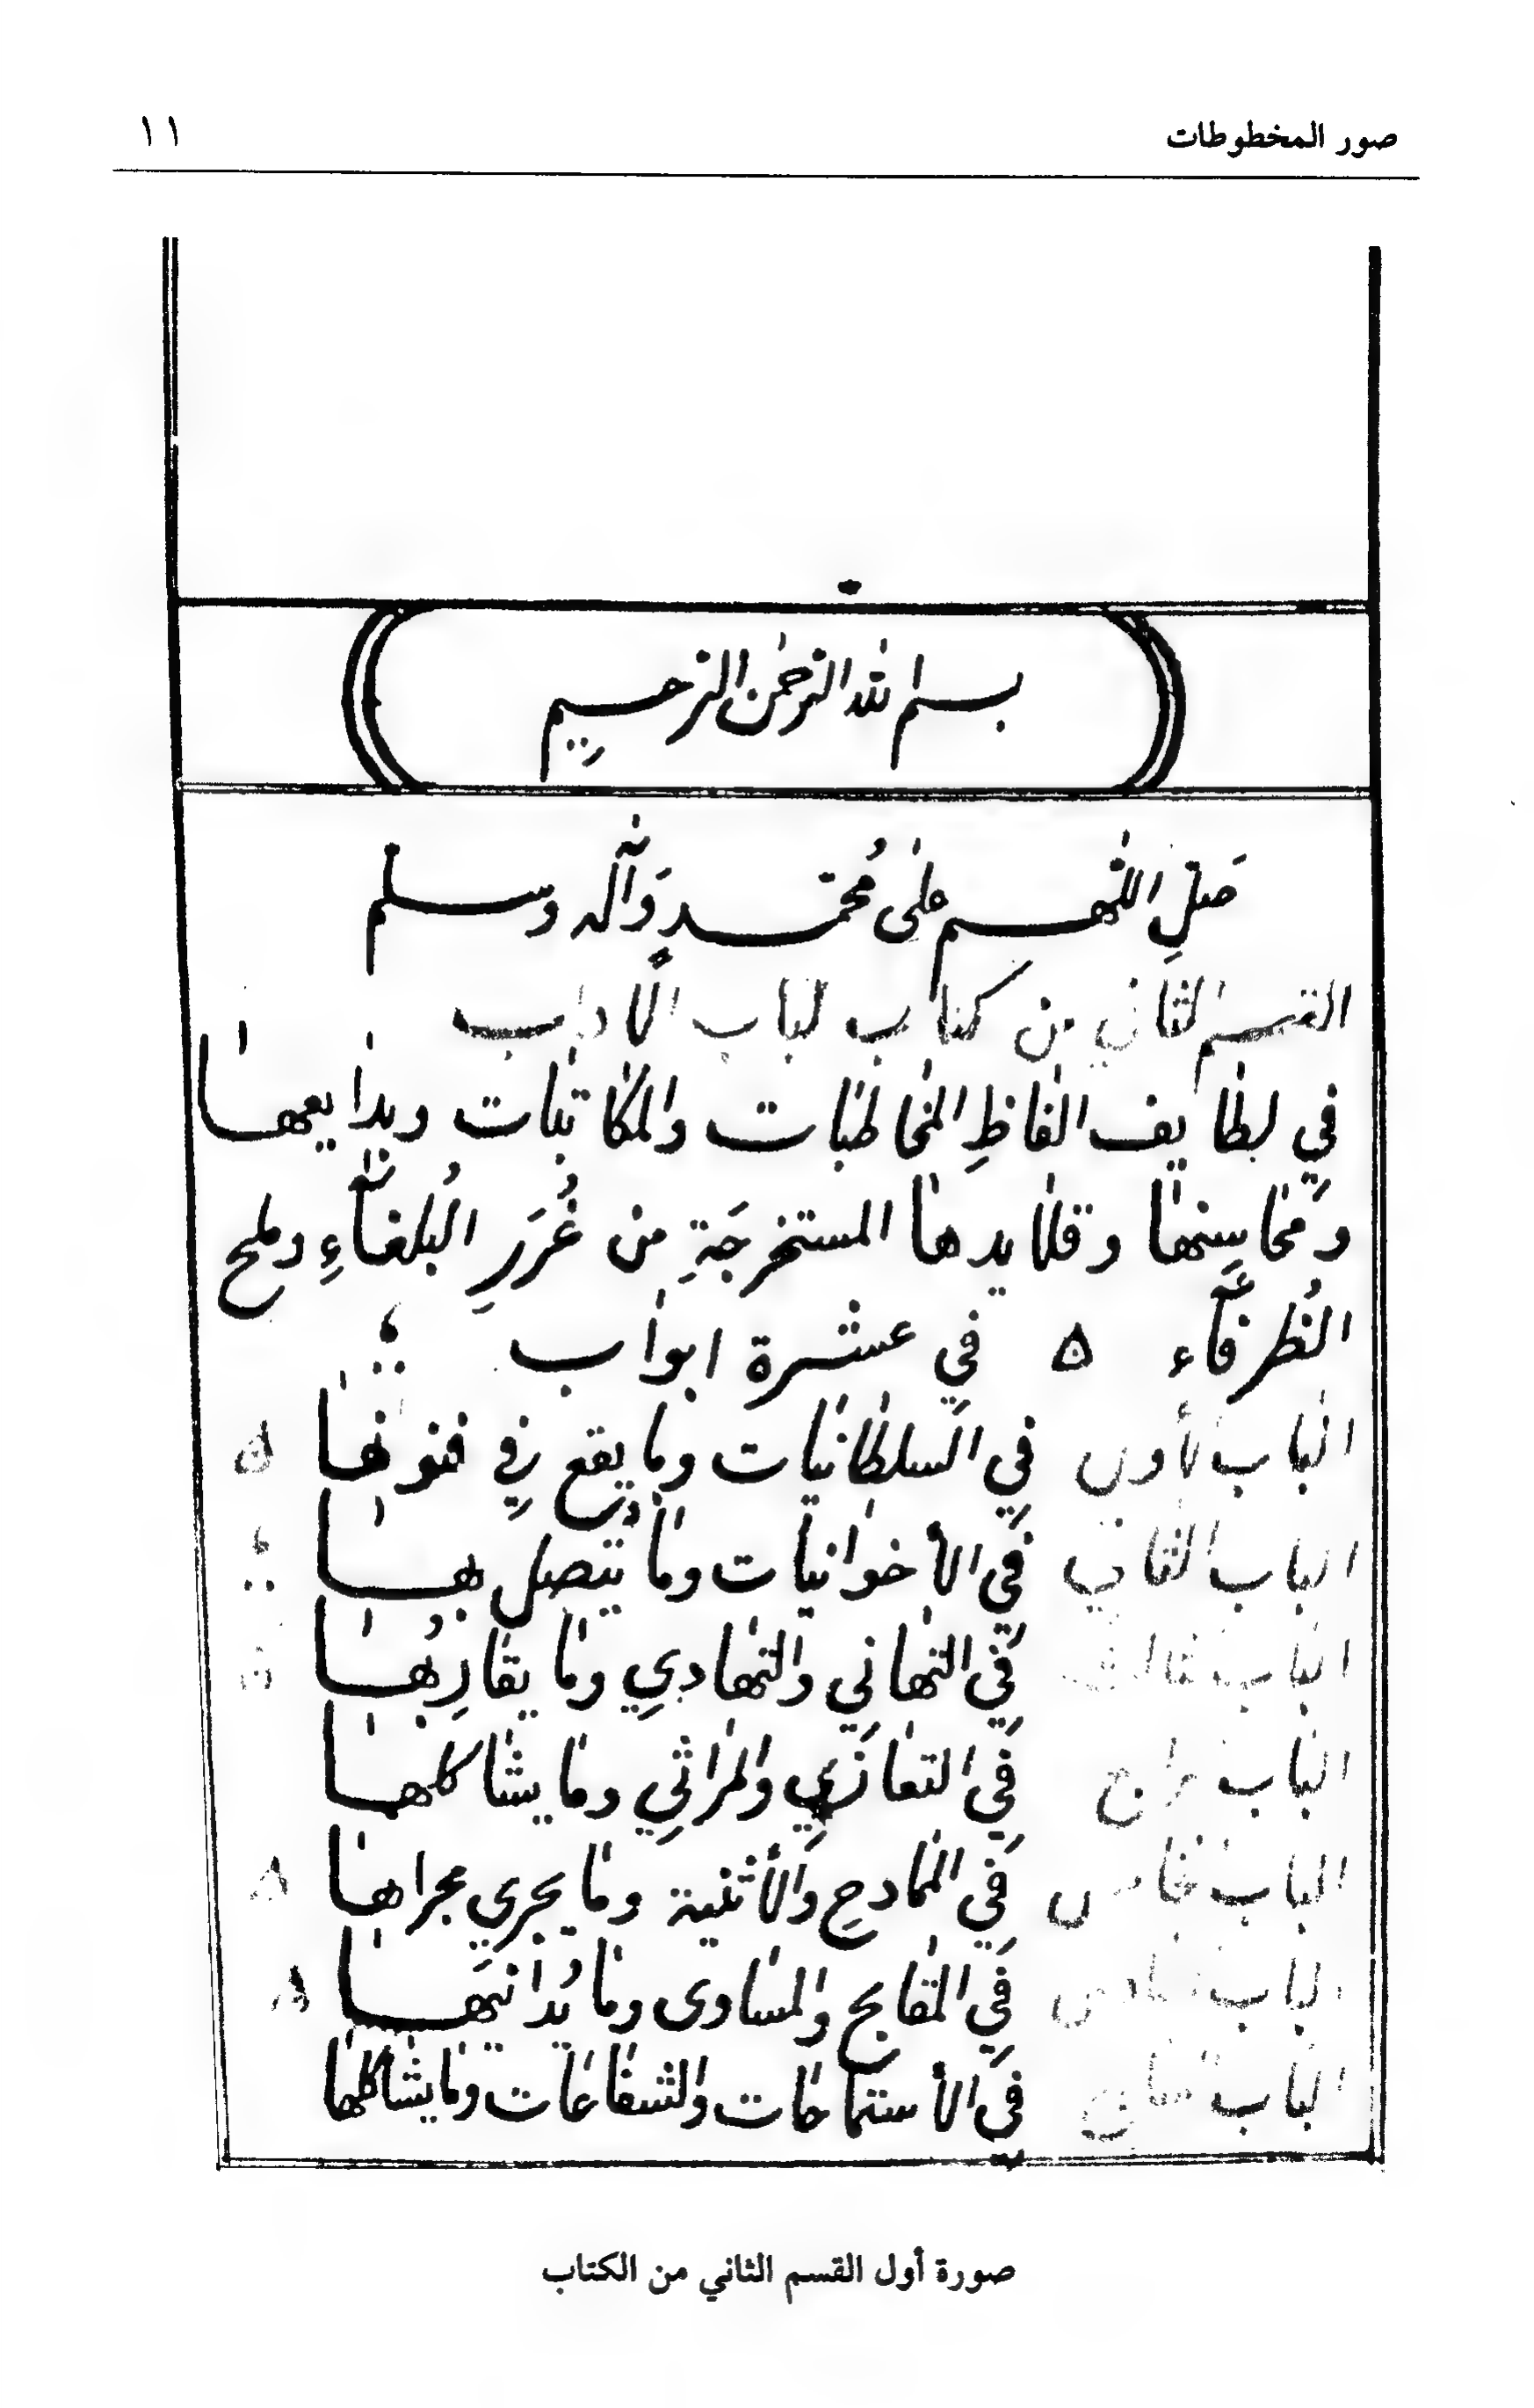 صور المخطوطات ١١
بسم الله الرحمن الرحيم
صَلِّ اللّٰهم على مُحمّدٍ وَآله وسلم
القسم الثاني من كتاب لباب الاداب
في لطايف الفاظِ المخاطبات والمكاتبات وبدايعها
ومحاسِنها وقلايدها المستخرجَةِ من غُرَرِ البُلغآءِ وملح
الظُرفآء ۵ في عشرة ابواب
الباب الأول في السلطانيات وما يقع في فنونها
الباب الثاني في الأخوانيات وما يتصل بها
الباب ثالث في التهاني والتهادي وما يقارِبُها
الباب رابع في التعازي والمراثي وما يشاكلها
الباب خامس في الممادح والأثنية وما يجري مجراها
الباب سادس في المقابح والمساوى وما يُدانيَها
الباب سابع في الأستماحات والشفاعات وما يشاكلها
صورة أول القسم الثاني من الكتاب